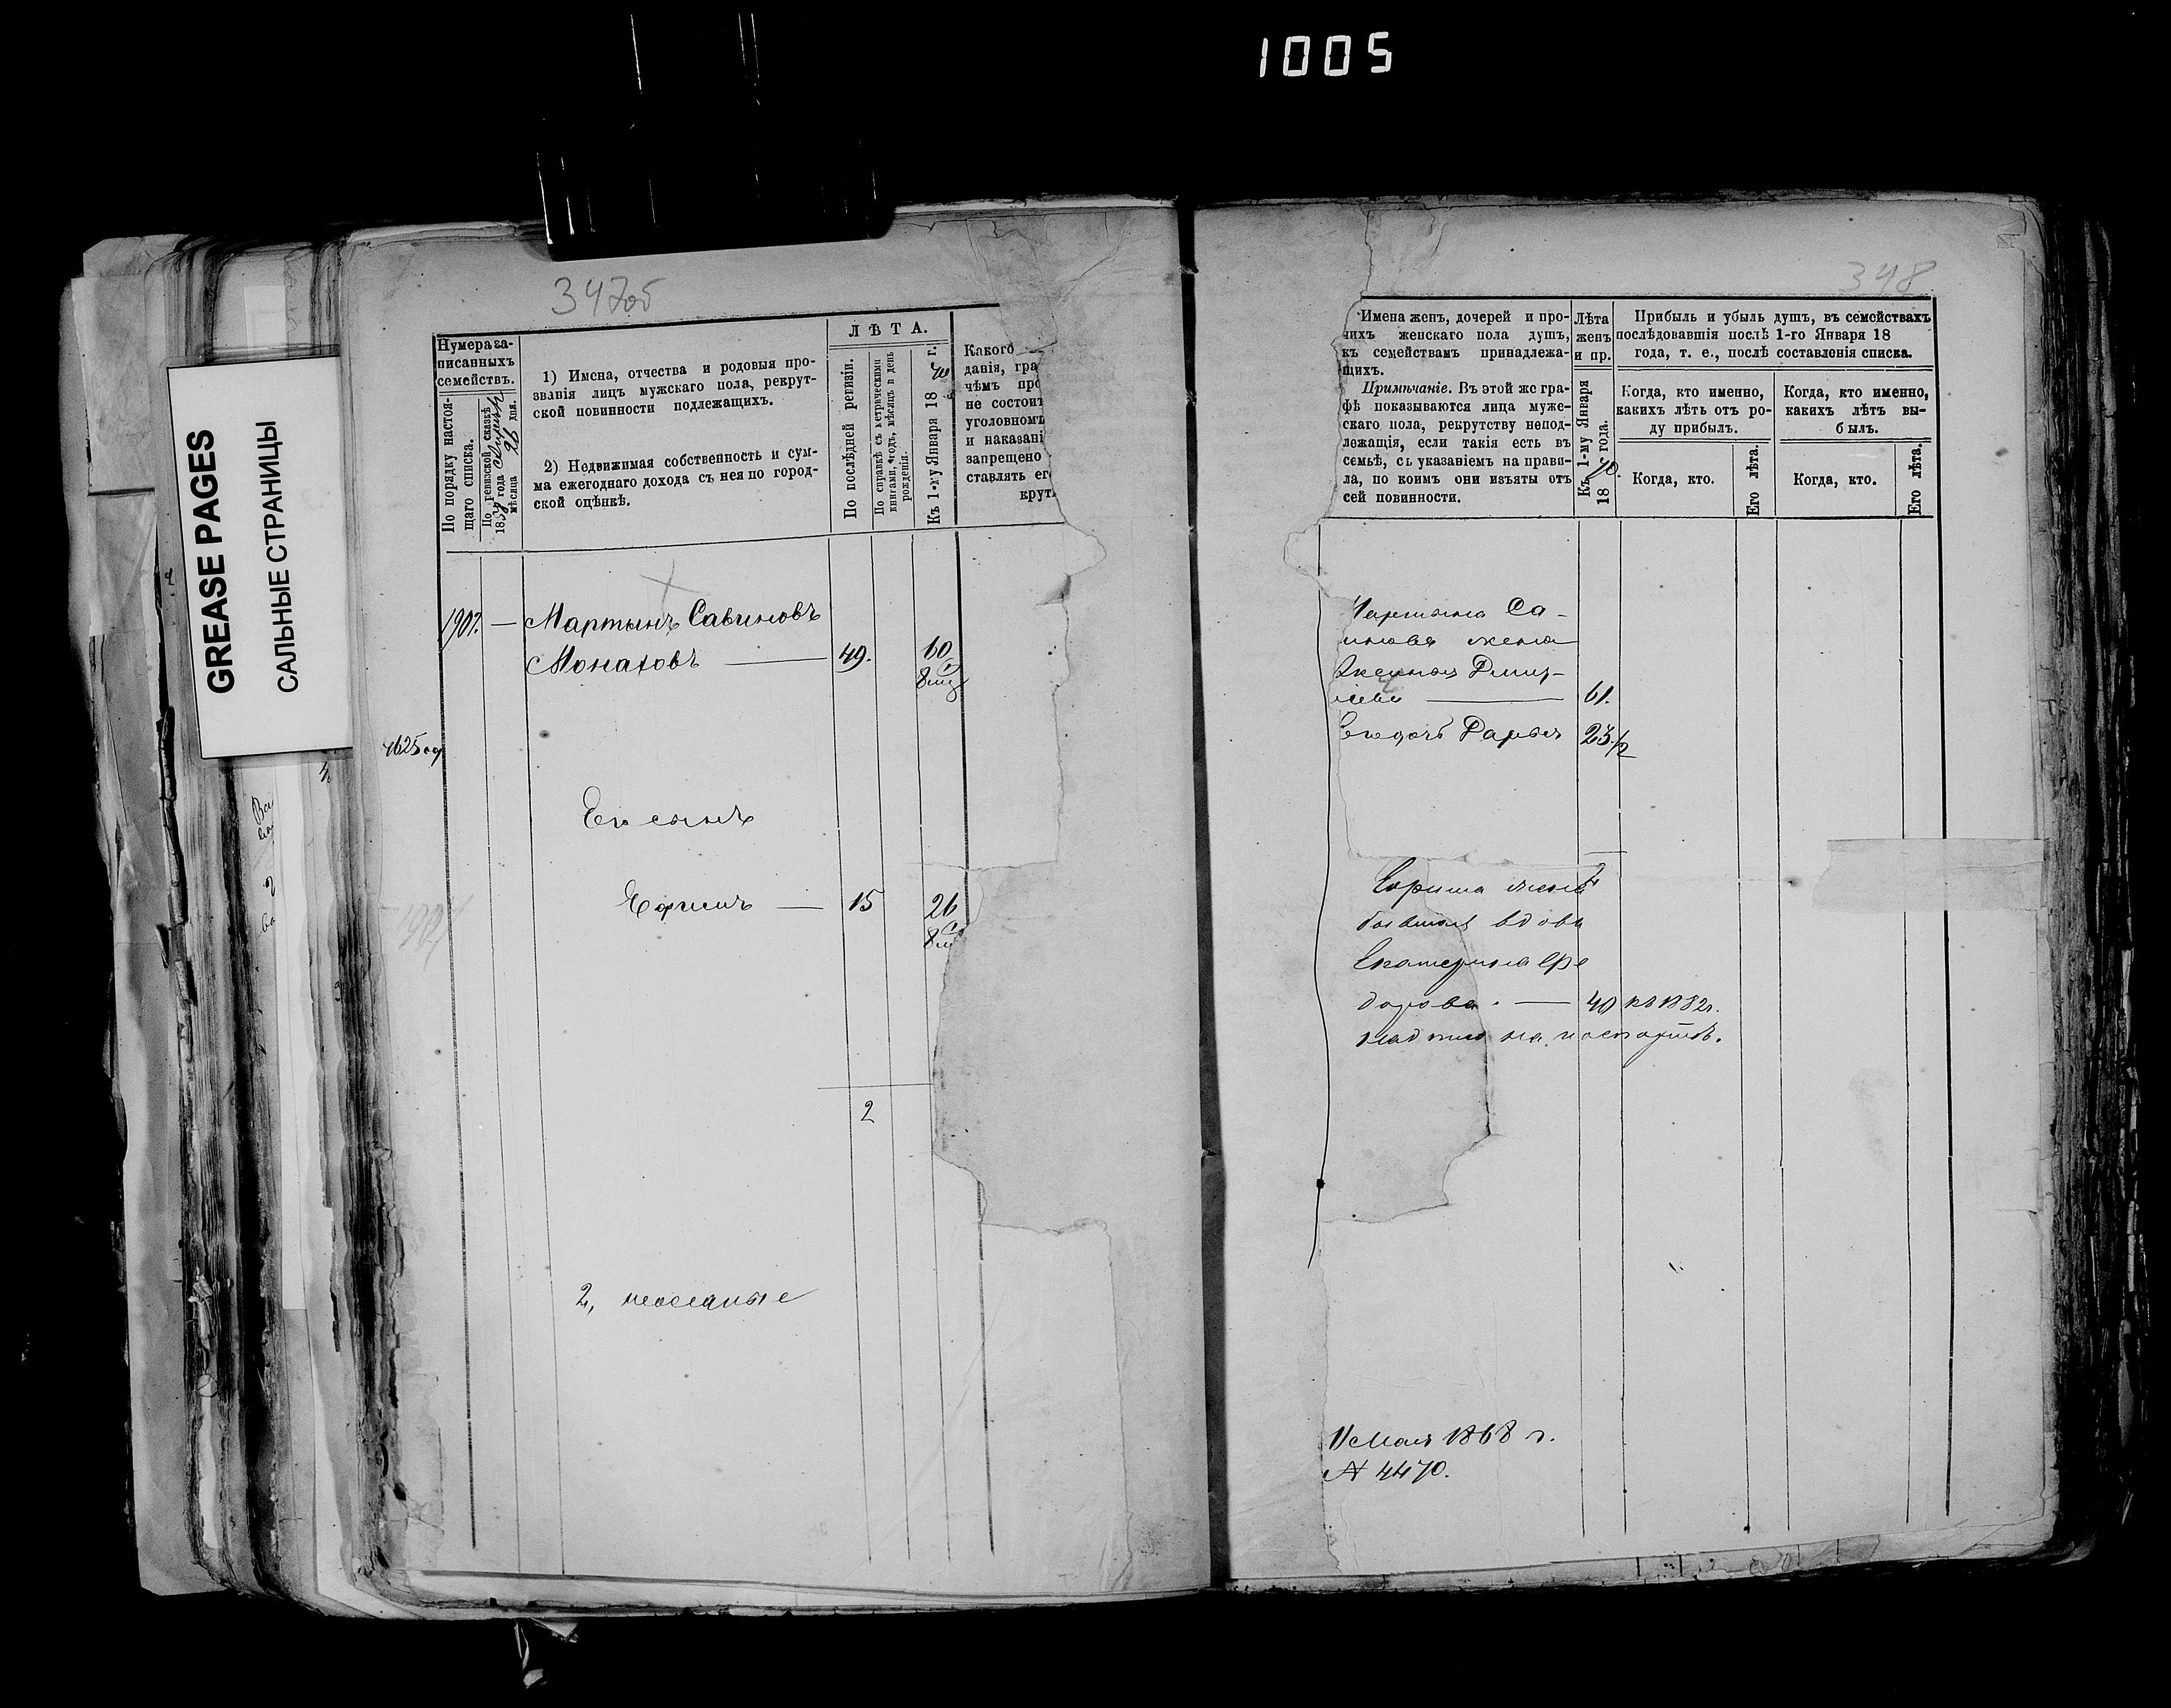 1005
GREASE PAGES
САЛЬНЫЕ СТРАНИЦЫ
347об
Нумера за-
писанныхъ
семействъ.
По порядку настоя-
щаго списка.
По ревизской сказкѣ
1857 года Апрѣля
мѣсяца 26 дня.
1) Имена, отчества и родовыя про-
званія лицъ мужскаго пола, рекрут-
ской повинности подлежащихъ.
2) Недвижимая собственность и сум-
ма ежегоднаго дохода съ нея по город-
ской оцѣнкѣ.
ЛѢТА.
По послѣдней ревизіи.
По справкѣ съ метрическими
книгами, годъ, мѣсяцъ и день
рожденія.
Къ 1-му Января 18 г.
Какого
данія, гра
чѣмъ про
не состоит
уголовномъ
и наказані
запрещено
ставлять ег
крут
1907. — Мартынъ Савиновъ
Монаховъ — 49. 60
8 мц
1625
Его сынъ
Ефимъ — 15 26
8 м
2
2,
348
Имена женъ, дочерей и про-
чихъ женскаго пола душъ,
къ семействамъ принадлежа-
щихъ.
Примѣчаніе. Въ этой же гра-
фѣ показываются лица муже-
скаго пола, рекрутству непод-
лежащія, если такія есть въ
семьѣ, съ указаніемъ на прави-
ла, по коимъ они изъяты отъ
сей повинности.
Лѣта
женъ
и пр.
Къ 1-му Января
1870 года.
Прибыль и убыль душъ, въ семействахъ
послѣдовавшія послѣ 1-го Января 18
года, т. е., послѣ составленія списка.
Когда, кто именно,
какихъ лѣтъ отъ ро-
ду прибылъ.
Когда, кто именно,
какихъ лѣтъ вы-
былъ.
Когда, кто.
Его лѣта.
Когда, кто.
Его лѣта.
Мартына Са-
винова жена
Аксинья Дмит-
ріева — 61.
Его дочь Дарья 23 1/2
Ефима жена
бывшая вдова
Екатерина Фе
дорова. — 40 къ 1882г.
на паспортѣ.
11 Мая 1868 г.
№ 4470.